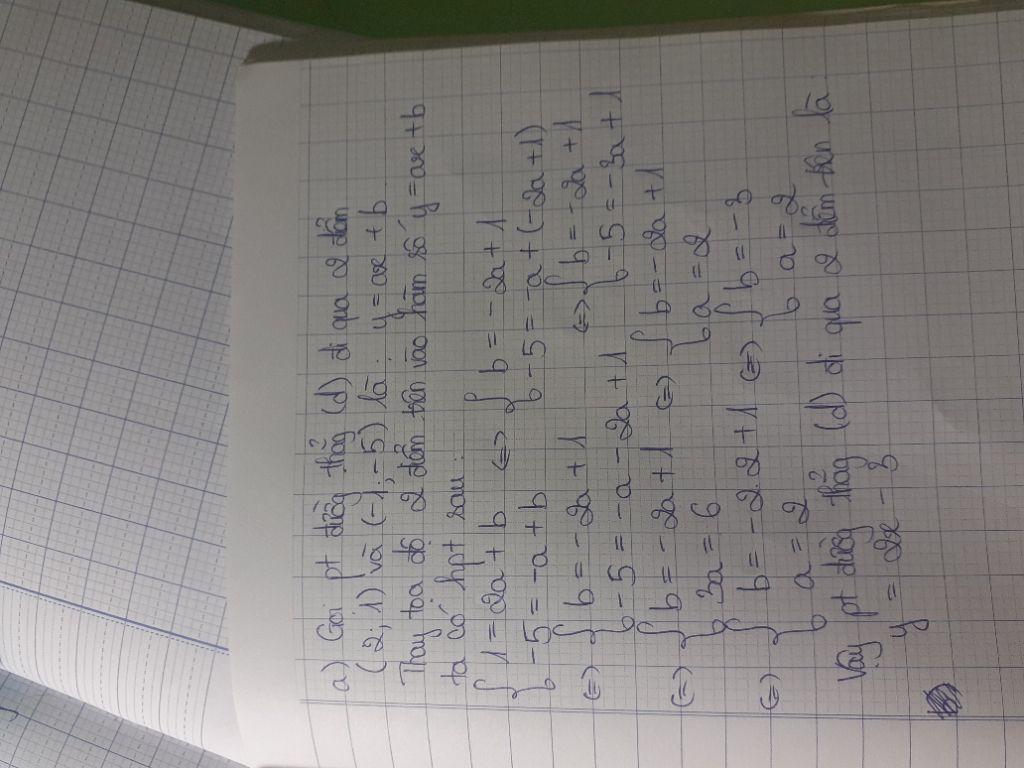 a) Gọi pt đường thẳng (d) đi qua 2 điểm
(2; 1) và (-1; -5) là: y = ax + b
Thay tọa độ 2 điểm trên vào hàm số y = ax + b
ta có hpt sau:
{ 1 = 2a + b <=> { b = -2a + 1
{ -5 = -a + b { -5 = -a + (-2a + 1)
<=> { b = -2a + 1 <=> { b = -2a + 1
{ -5 = -a - 2a + 1 { -5 = -3a + 1
<=> { b = -2a + 1 <=> { b = -2a + 1
{ 3a = 6 { a = 2
<=> { b = -2.2 + 1 <=> { b = -3
{ a = 2 { a = 2
Vậy pt đường thẳng (d) đi qua 2 điểm trên là:
y = 2x - 3